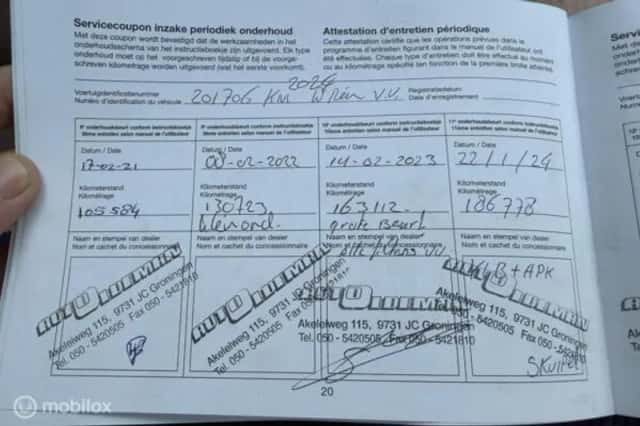 Servicecoupon inzake periodiek onderhoud
Met deze coupon wordt bevestigd dat de werkzaamheden in het
onderhoudsschema van het instructieboekje zijn uitgevoerd. Elk type
onderhoud moet op het voorgeschreven tijdstip of bij de voorge-
schreven kilometrage worden uitgevoerd (wat het eerste voorkomt).
Attestation d'entretien périodique
Cette attestation certifie que les opérations prévues dans le
programme d'entretien figurant dans le manuel de l'utilisateur ont
été effectuées. Chaque type d'entretien doit être effectué au moment
ou au kilométrage spécifié (en fonction de la première limite atteinte).
2024
Voertuigidentificatienummer
Numéro d'identification du véhicule
201706 KM
V.V.
Registratiedatum
Date d'enregistrement
8e onderhoudsbeurt conform instructieboekje
8ième entretien selon manuel de l'utilisateur
9e onderhoudsbeurt conform instructieboekje
9ième entretien selon manuel de l'utilisateur
10e onderhoudsbeurt conform instructieboekje
10ième entretien selon manuel de l'utilisateur
11e onderhoudsbeurt conform instructieboekje
11ième entretien selon manuel de l'utilisateur
Datum / Date
17-02-21
Datum / Date
08-02-2022
Datum / Date
14-02-2023
Datum / Date
22/1/24
Kilometerstand
Kilométrage
105584
Kilometerstand
Kilométrage
130723
Kilometerstand
Kilométrage
163112
grote Beurt
Kilometerstand
Kilométrage
186778
Naam en stempel van dealer
Nom et cachet du concessionnaire
Naam en stempel van dealer
Nom et cachet du concessionnaire
Naam en stempel van dealer
Nom et cachet du concessionnaire
Naam en stempel van dealer
Nom et cachet du concessionnaire
B + APK
Akeleiweg 115, 9731 JC Groningen
Tel. 050 - 5420505 Fax 050 - 5421810
Akeleiweg 115, 9731 JC Groningen
Tel. 050 - 5420505
Akeleiweg 115, 9731 JC Groningen
Tel. 050 - 5420505 Fax 050 - 5421810
Akeleiweg 115, 9731 JC Groningen
Tel. 050 - 5420505 Fax 050
20
mobilox